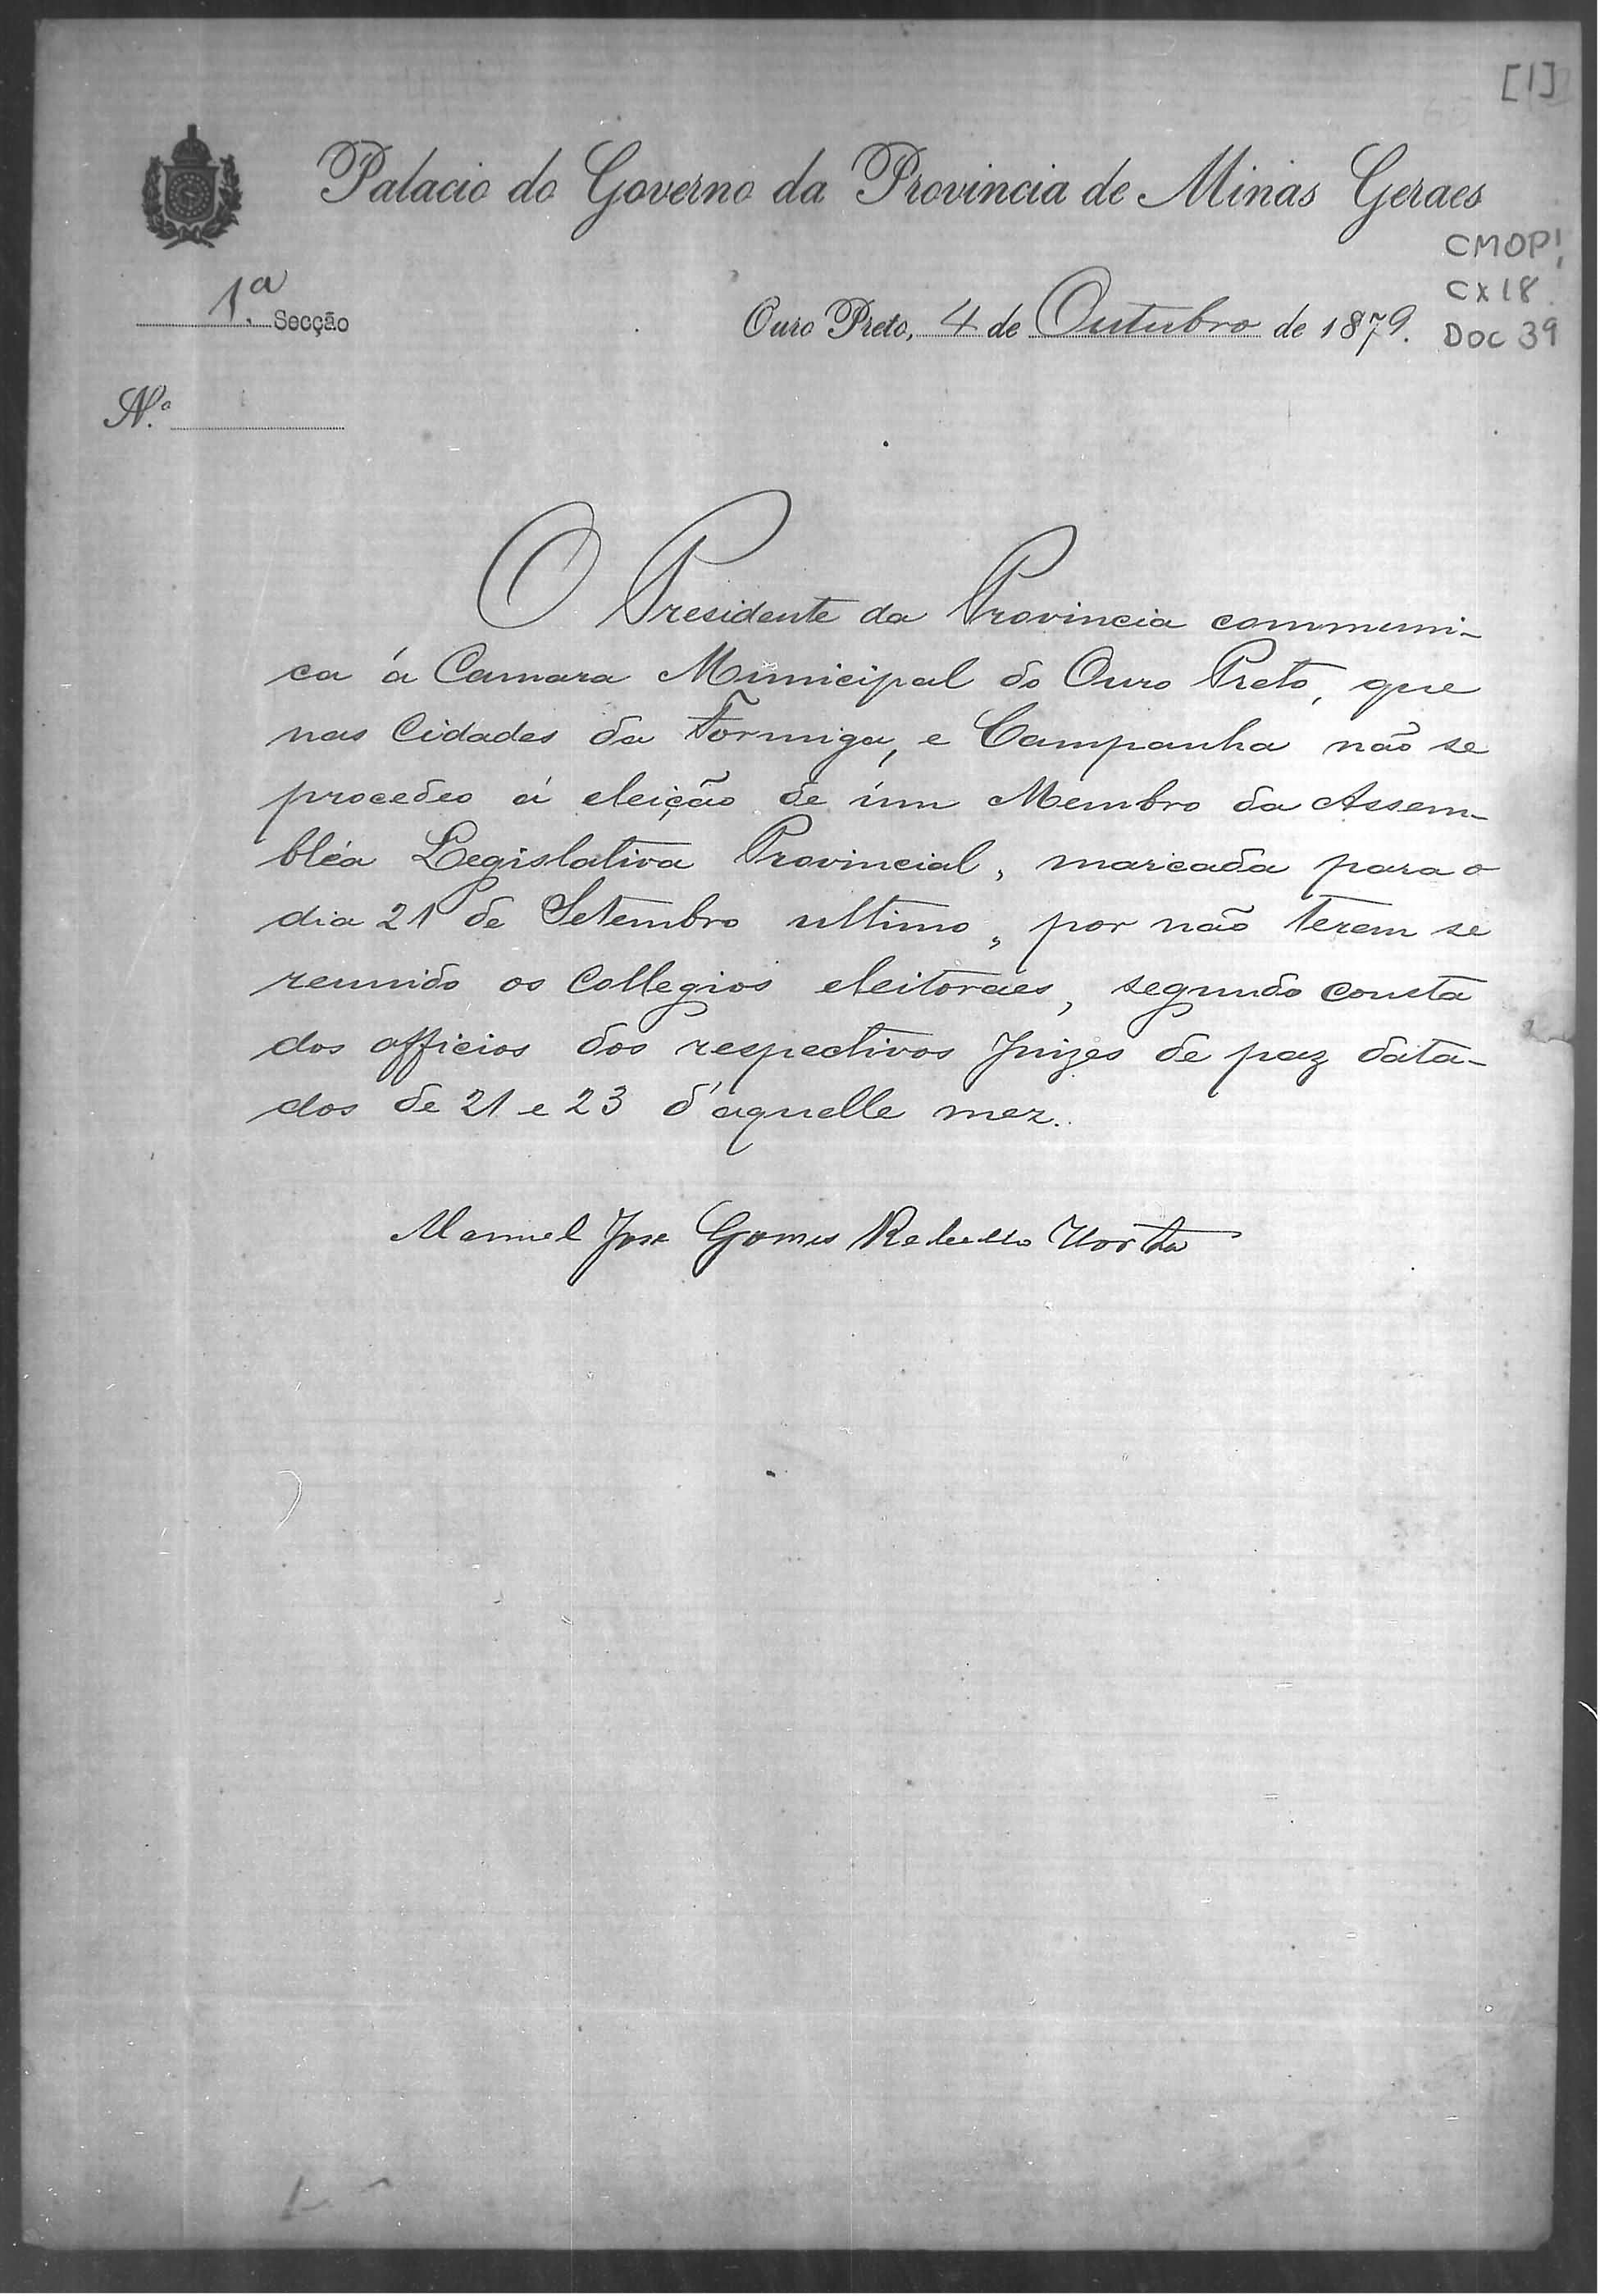 [1]
Palacio do Governo da Provincia de Minas Geraes
CMOP
CX 18
DOC 39
1.ª Secção
Ouro Preto, 4 de Outubro de 1879.
N.º
O Presidente da Provincia communi-
ca á Camara Municipal do Ouro Preto, que
nas Cidades da Formiga, e Campanha não se
procedeo á eleição de um Membro da Assem-
bléa Legislativa Provincial, marcada para o
dia 21 de Setembro ultimo, por não terem se
reunido os Collegios eleitoraes, segundo consta
dos officios dos respectivos Juizes de paz data-
dos de 21 e 23 d'aquelle mez.
Manuel José Gomes Rebello Horta